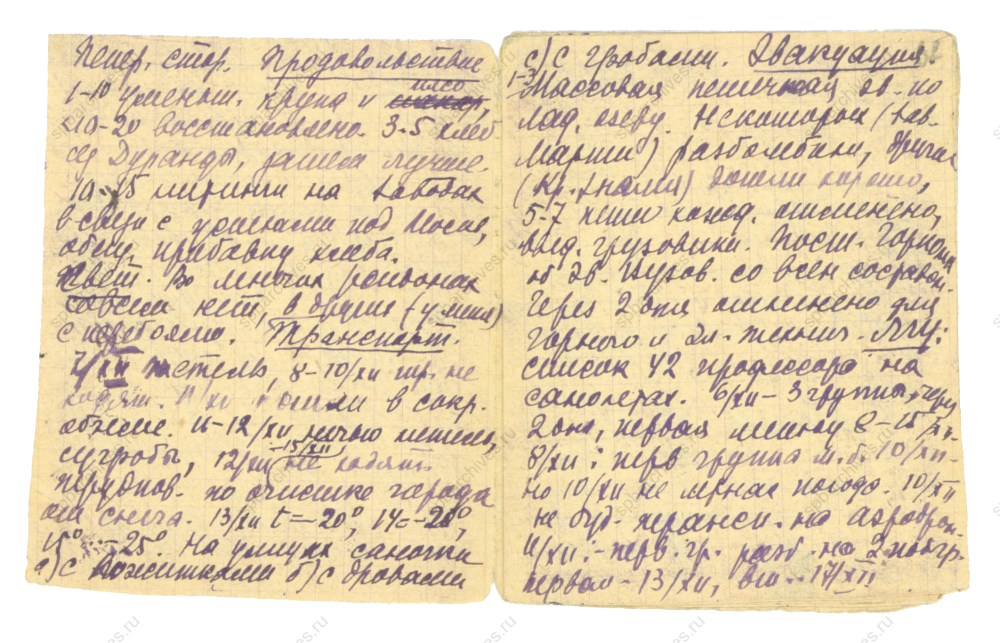 Пепер. стор. Продовольствие
1-10 уменьш. крупа и мясо
10-20 восстановлено. 3-5 хлеб
Дуранды, затем лучше.
10-15 митинги на заводах
в связи с успехами под Моск,
обещ. прибавку хлеба.
Свет. Во многих районах
совсем нет, в других (у меня)
с перебоями. Транспорт.
7/XII метель, 8-10/XII тр. не
ходят. 11 XII пошли в сокр.
объеме. 11-12/XII ночью метель,
сугробы, 12/XII-15/XII не ходят.
Трудпов. по очистке города
от снега. 13/XII t = -20°, 14 = -28°,
15° ... -25°. На улицах саночки
а) с пожитками б) с дровами
с) с гробами. Эвакуация.
1-3 Массовая пешечная эв. по
лад. озеру. Некоторых (
) разбомбили, другие
(Кр. ) дошли хорошо,
5-7 пеш. хожд. отменено,
выд. грузовики. Пост. Горного
об эв. со всем составом.
Через 2 дня отменено для
Горного и Эл-технич. ЛГУ:
список 42 профессора на
самолетах. 6/XII - 3 группы, через
2 дня, первая между 8-15/XII.
8/XII: перв. группа м. б. 10/XII.
Но 10/XII не летная погода. 10/XII
не буд. трансп. на аэродром.
11/XII: - перв. гр. разб. на 2 подгр.
первая - 13/XII, вт. - 17/XII